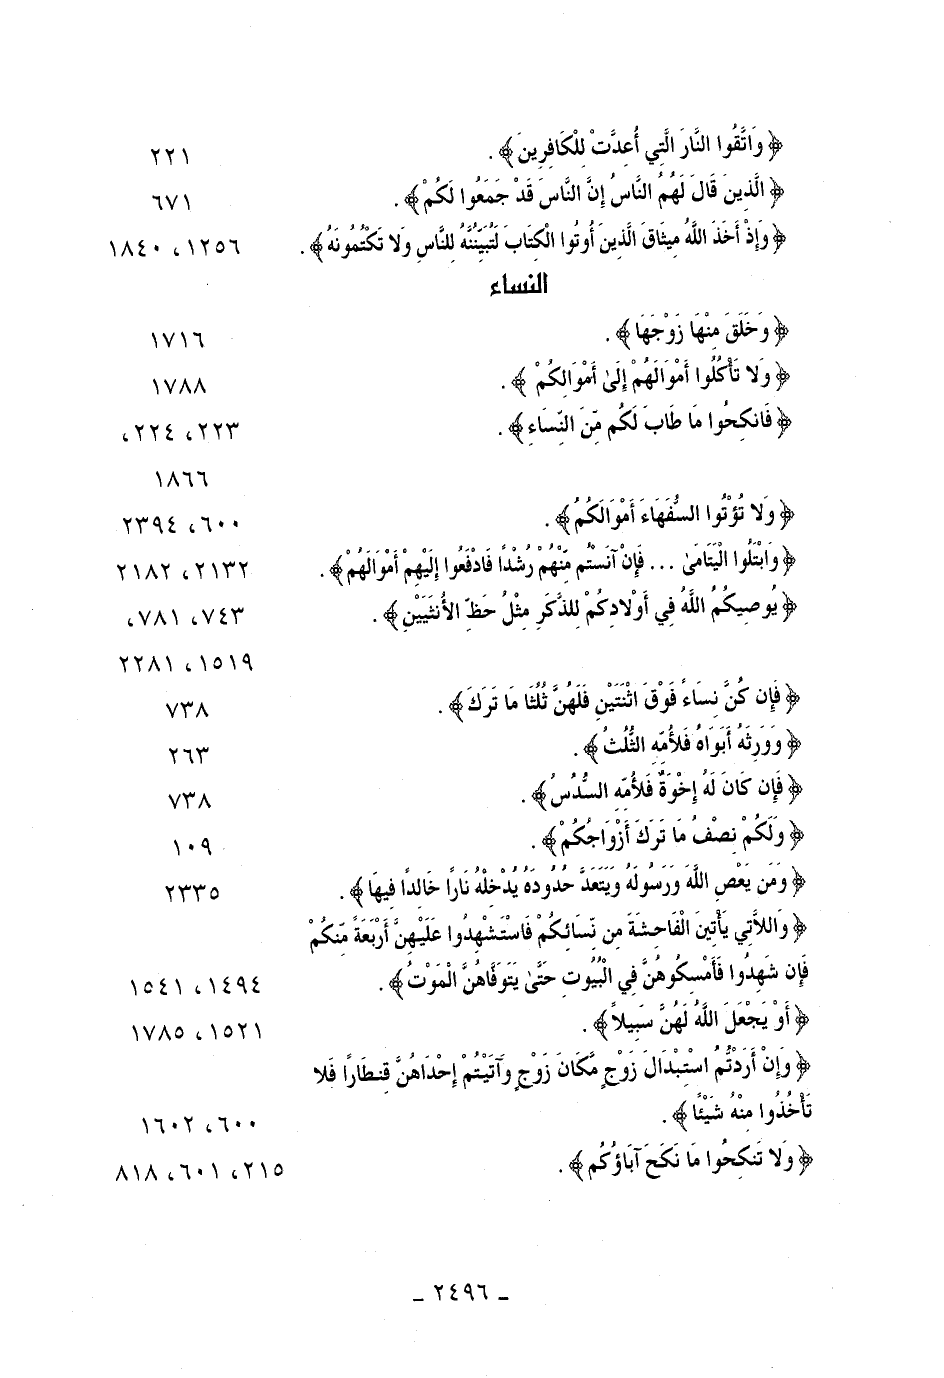 ﴿ وَاتَّقُوا النَّارَ الَّتِي أُعِدَّتْ لِلْكَافِرِينَ ﴾ . ٢٢١
﴿ الَّذِينَ قَالَ لَهُمُ النَّاسُ إِنَّ النَّاسَ قَدْ جَمَعُوا لَكُمْ ﴾ . ٦٧١
﴿ وَإِذْ أَخَذَ اللَّهُ مِيثَاقَ الَّذِينَ أُوتُوا الْكِتَابَ لَتُبَيِّنُنَّهُ لِلنَّاسِ وَلا تَكْتُمُونَهُ ﴾ . ١٢٥٦، ١٨٤٠
النساء
﴿ وَخَلَقَ مِنْهَا زَوْجَهَا ﴾ . ١٧١٦
﴿ وَلا تَأْكُلُوا أَمْوَالَهُمْ إِلَىٰ أَمْوَالِكُمْ ﴾ . ١٧٨٨
﴿ فَانكِحُوا مَا طَابَ لَكُم مِّنَ النِّسَاءِ ﴾ . ٢٢٣، ٢٢٤،
١٨٦٦
﴿ وَلا تُؤْتُوا السُّفَهَاءَ أَمْوَالَكُمُ ﴾ . ٦٠٠، ٢٣٩٤
﴿ وَابْتَلُوا الْيَتَامَىٰ ... فَإِنْ آنَسْتُم مِّنْهُمْ رُشْداً فَادْفَعُوا إِلَيْهِمْ أَمْوَالَهُمْ ﴾ . ٢١٣٢، ٢١٨٢
﴿ يُوصِيكُمُ اللَّهُ فِي أَوْلادِكُمْ لِلذَّكَرِ مِثْلُ حَظِّ الأُنثَيَيْنِ ﴾ . ٧٤٣، ٧٨١،
١٥١٩، ٢٢٨١
﴿ فَإِن كُنَّ نِسَاءً فَوْقَ اثْنَتَيْنِ فَلَهُنَّ ثُلُثَا مَا تَرَكَ ﴾ . ٧٣٨
﴿ وَوَرِثَهُ أَبَوَاهُ فَلأُمِّهِ الثُّلُثُ ﴾ . ٢٦٣
﴿ فَإِن كَانَ لَهُ إِخْوَةٌ فَلأُمِّهِ السُّدُسُ ﴾ . ٧٣٨
﴿ وَلَكُمْ نِصْفُ مَا تَرَكَ أَزْوَاجُكُمْ ﴾ . ١٠٩
﴿ وَمَن يَعْصِ اللَّهَ وَرَسُولَهُ وَيَتَعَدَّ حُدُودَهُ يُدْخِلْهُ نَاراً خَالِداً فِيهَا ﴾ . ٢٣٣٥
﴿ وَاللاَّتِي يَأْتِينَ الْفَاحِشَةَ مِن نِّسَائِكُمْ فَاسْتَشْهِدُوا عَلَيْهِنَّ أَرْبَعَةً مِّنكُمْ
فَإِن شَهِدُوا فَأَمْسِكُوهُنَّ فِي الْبُيُوتِ حَتَّىٰ يَتَوَفَّاهُنَّ الْمَوْتُ ﴾ . ١٤٩٤، ١٥٤١
﴿ أَوْ يَجْعَلَ اللَّهُ لَهُنَّ سَبِيلاً ﴾ . ١٥٢١، ١٧٨٥
﴿ وَإِنْ أَرَدْتُّمُ اسْتِبْدَالَ زَوْجٍ مَّكَانَ زَوْجٍ وَآتَيْتُمْ إِحْدَاهُنَّ قِنطَاراً فَلا
تَأْخُذُوا مِنْهُ شَيْئًا ﴾ . ٦٠٠، ١٦٠٢
﴿ وَلا تَنكِحُوا مَا نَكَحَ آبَاؤُكُم ﴾ . ٢١٥، ٦٠١، ٨١٨
ـ ٢٤٩٦ ـ